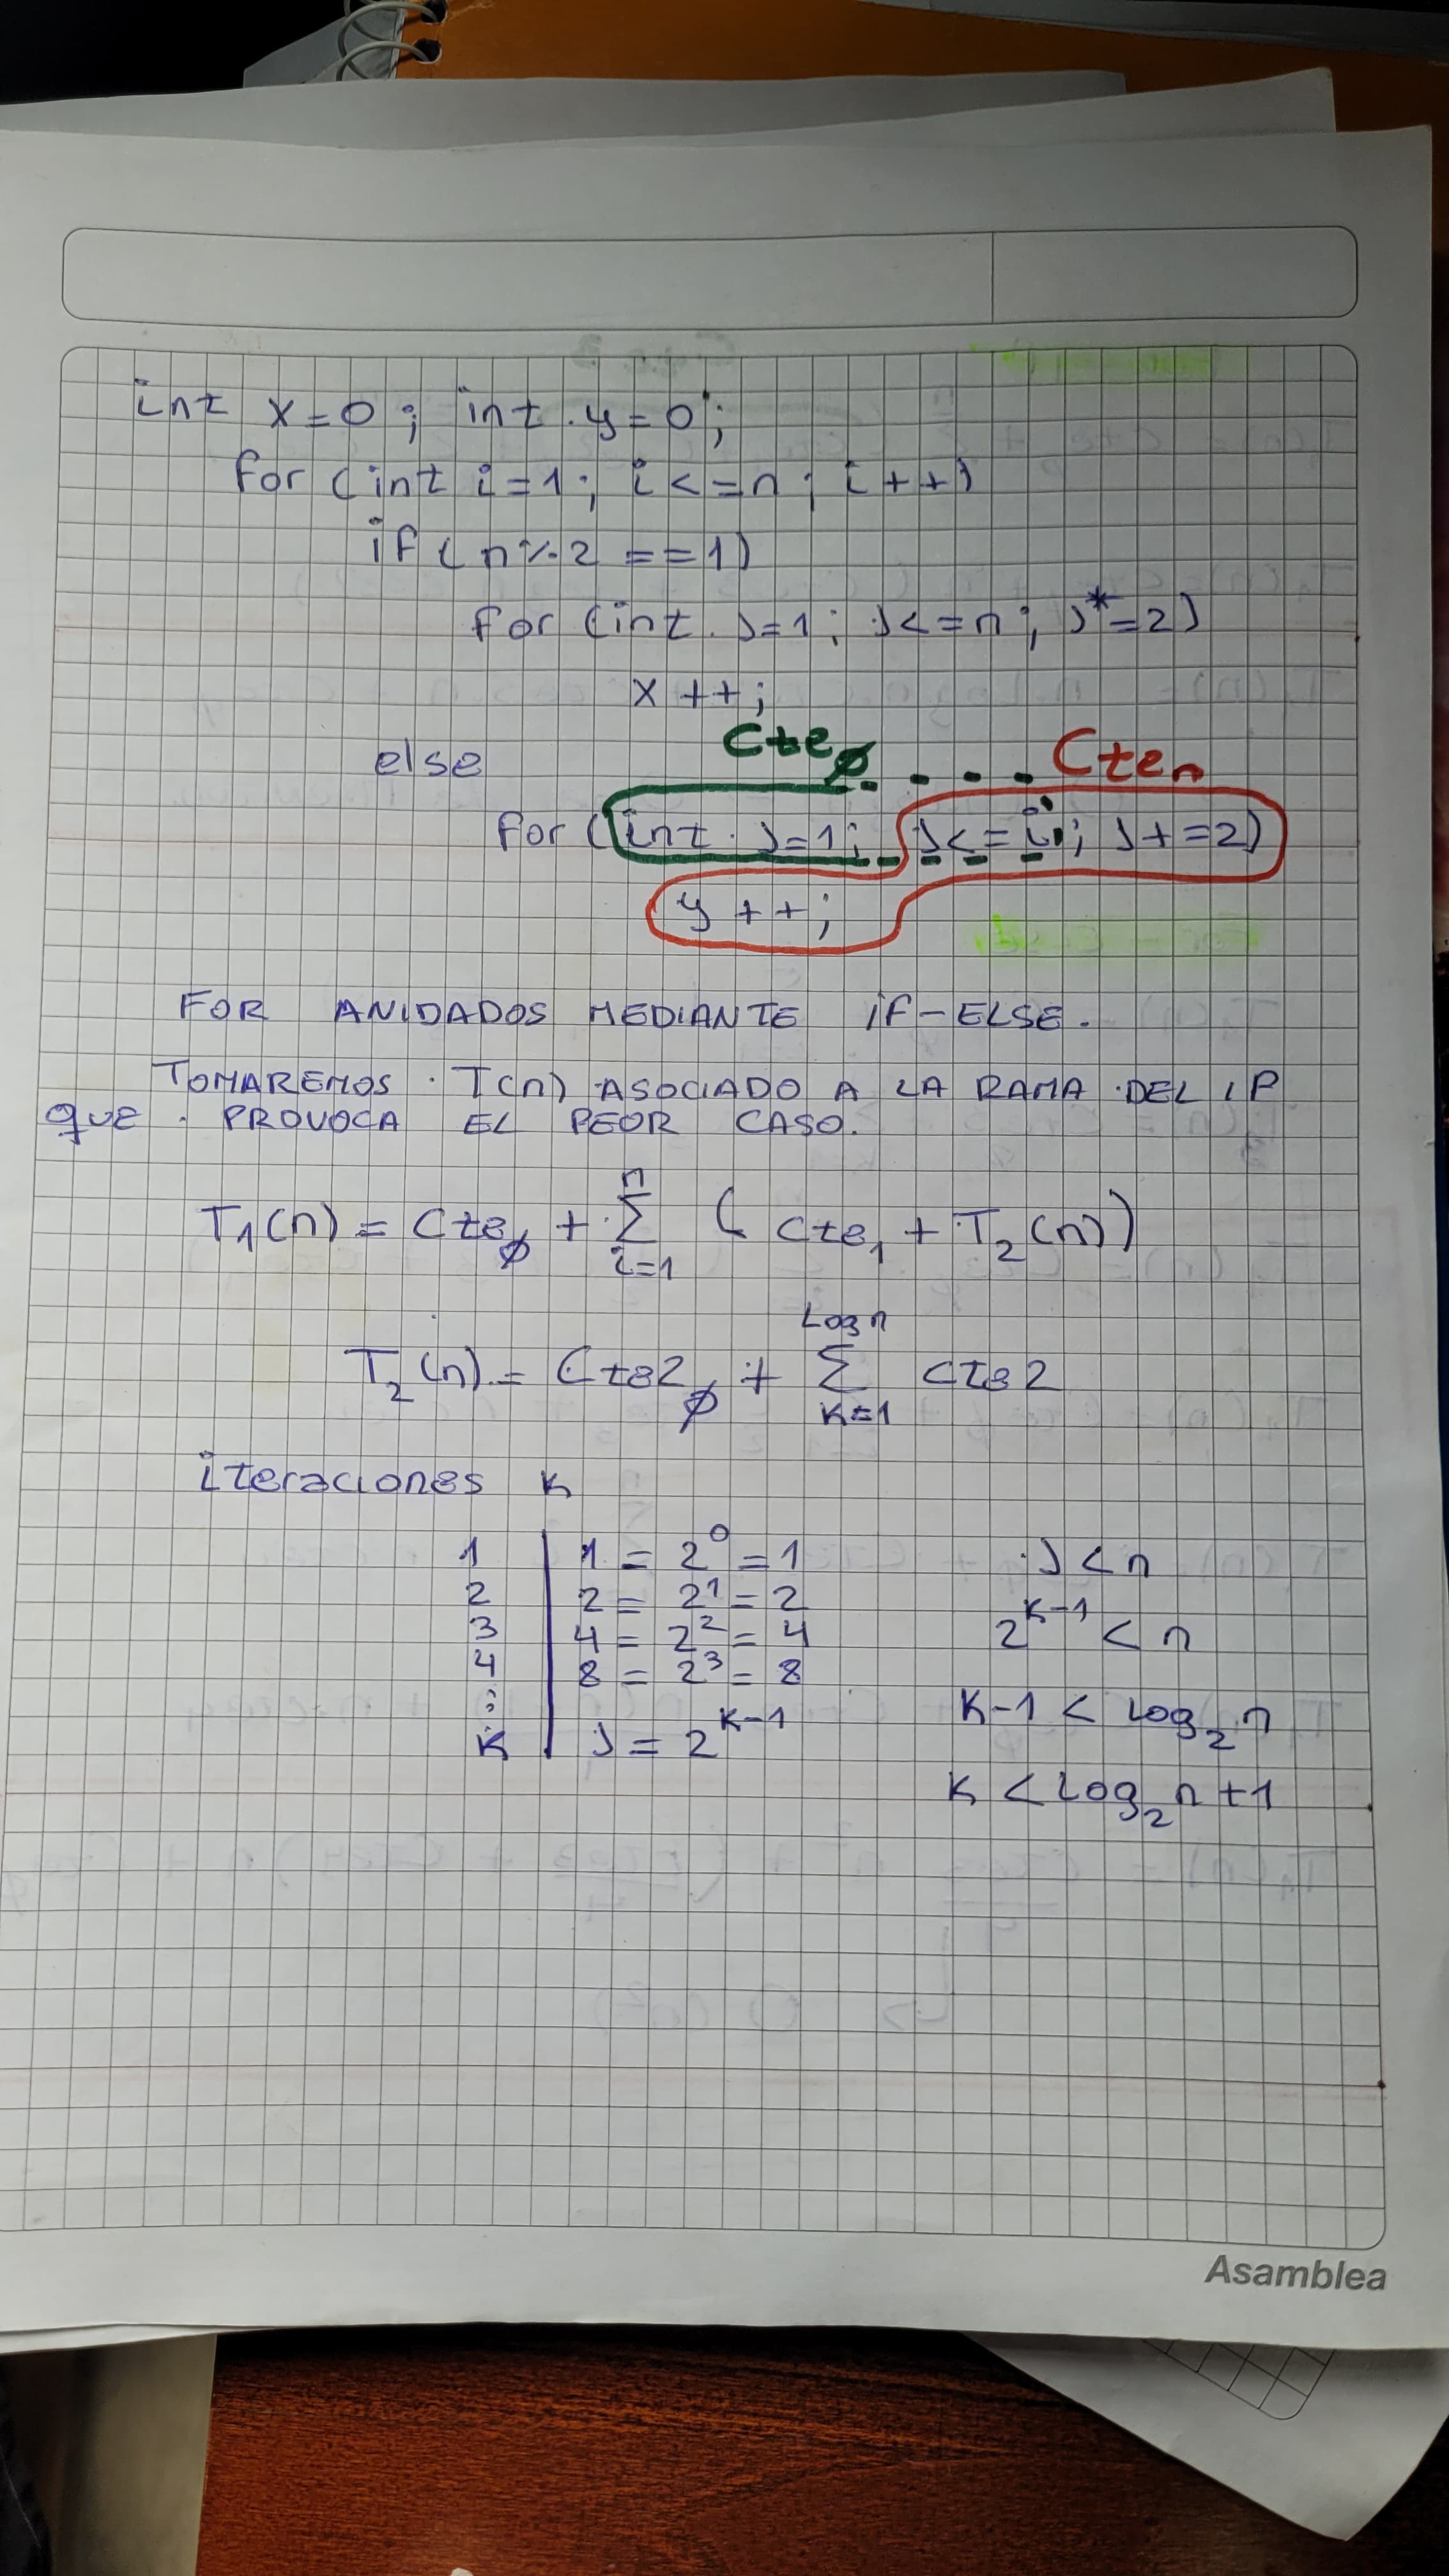 int x=0; int y=0;
for (int i=1; i<=n; i++)
if (n%2 ==1)
for (int j=1; j<=n; j*=2)
x++;
else
Cteø
Cten
for (int j=1; j<=i; j+=2)
y++;
FOR ANIDADOS MEDIANTE iF-ELSE.
TOMAREMOS T(n) ASOCIADO A LA RAMA DEL iF
que PROVOCA EL PEOR CASO.
T₁(n) = Cteø + Σ_{i=1}^{n} (Cte₁ + T₂(n))
T₂(n) = Cte2ø + Σ_{k=1}^{Log n} cte2
iteraciones k
1 | 1 = 2⁰ = 1
2 | 2 = 2¹ = 2
3 | 4 = 2² = 4
4 | 8 = 2³ = 8
⋮
k | j = 2^{k-1}
j < n
2^{k-1} < n
k-1 < log₂n
k < Log₂n+1
Asamblea